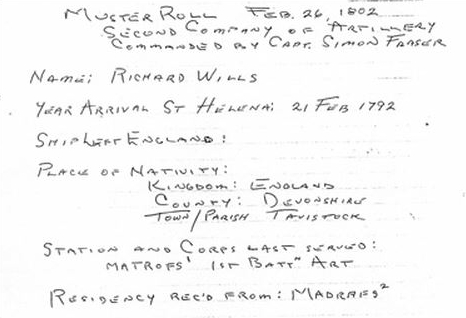 MUSTER ROLL FEB. 26, 1802
SECOND COMPANY OF ARTILLERY
COMMANDED BY CAPT. SIMON FRASER
NAME: RICHARD WILLS
YEAR ARRIVAL ST HELENA: 21 FEB 1792
SHIP LEFT ENGLAND:
PLACE OF NATIVITY:
KINGDOM: ENGLAND
COUNTY: DEVONSHIRE
TOWN/PARISH TAVISTOCK
STATION AND CORPS LAST SERVED:
MATROFS' 1ST BATTN ART
RESIDENCY REC'D FROM: MADRAFS2